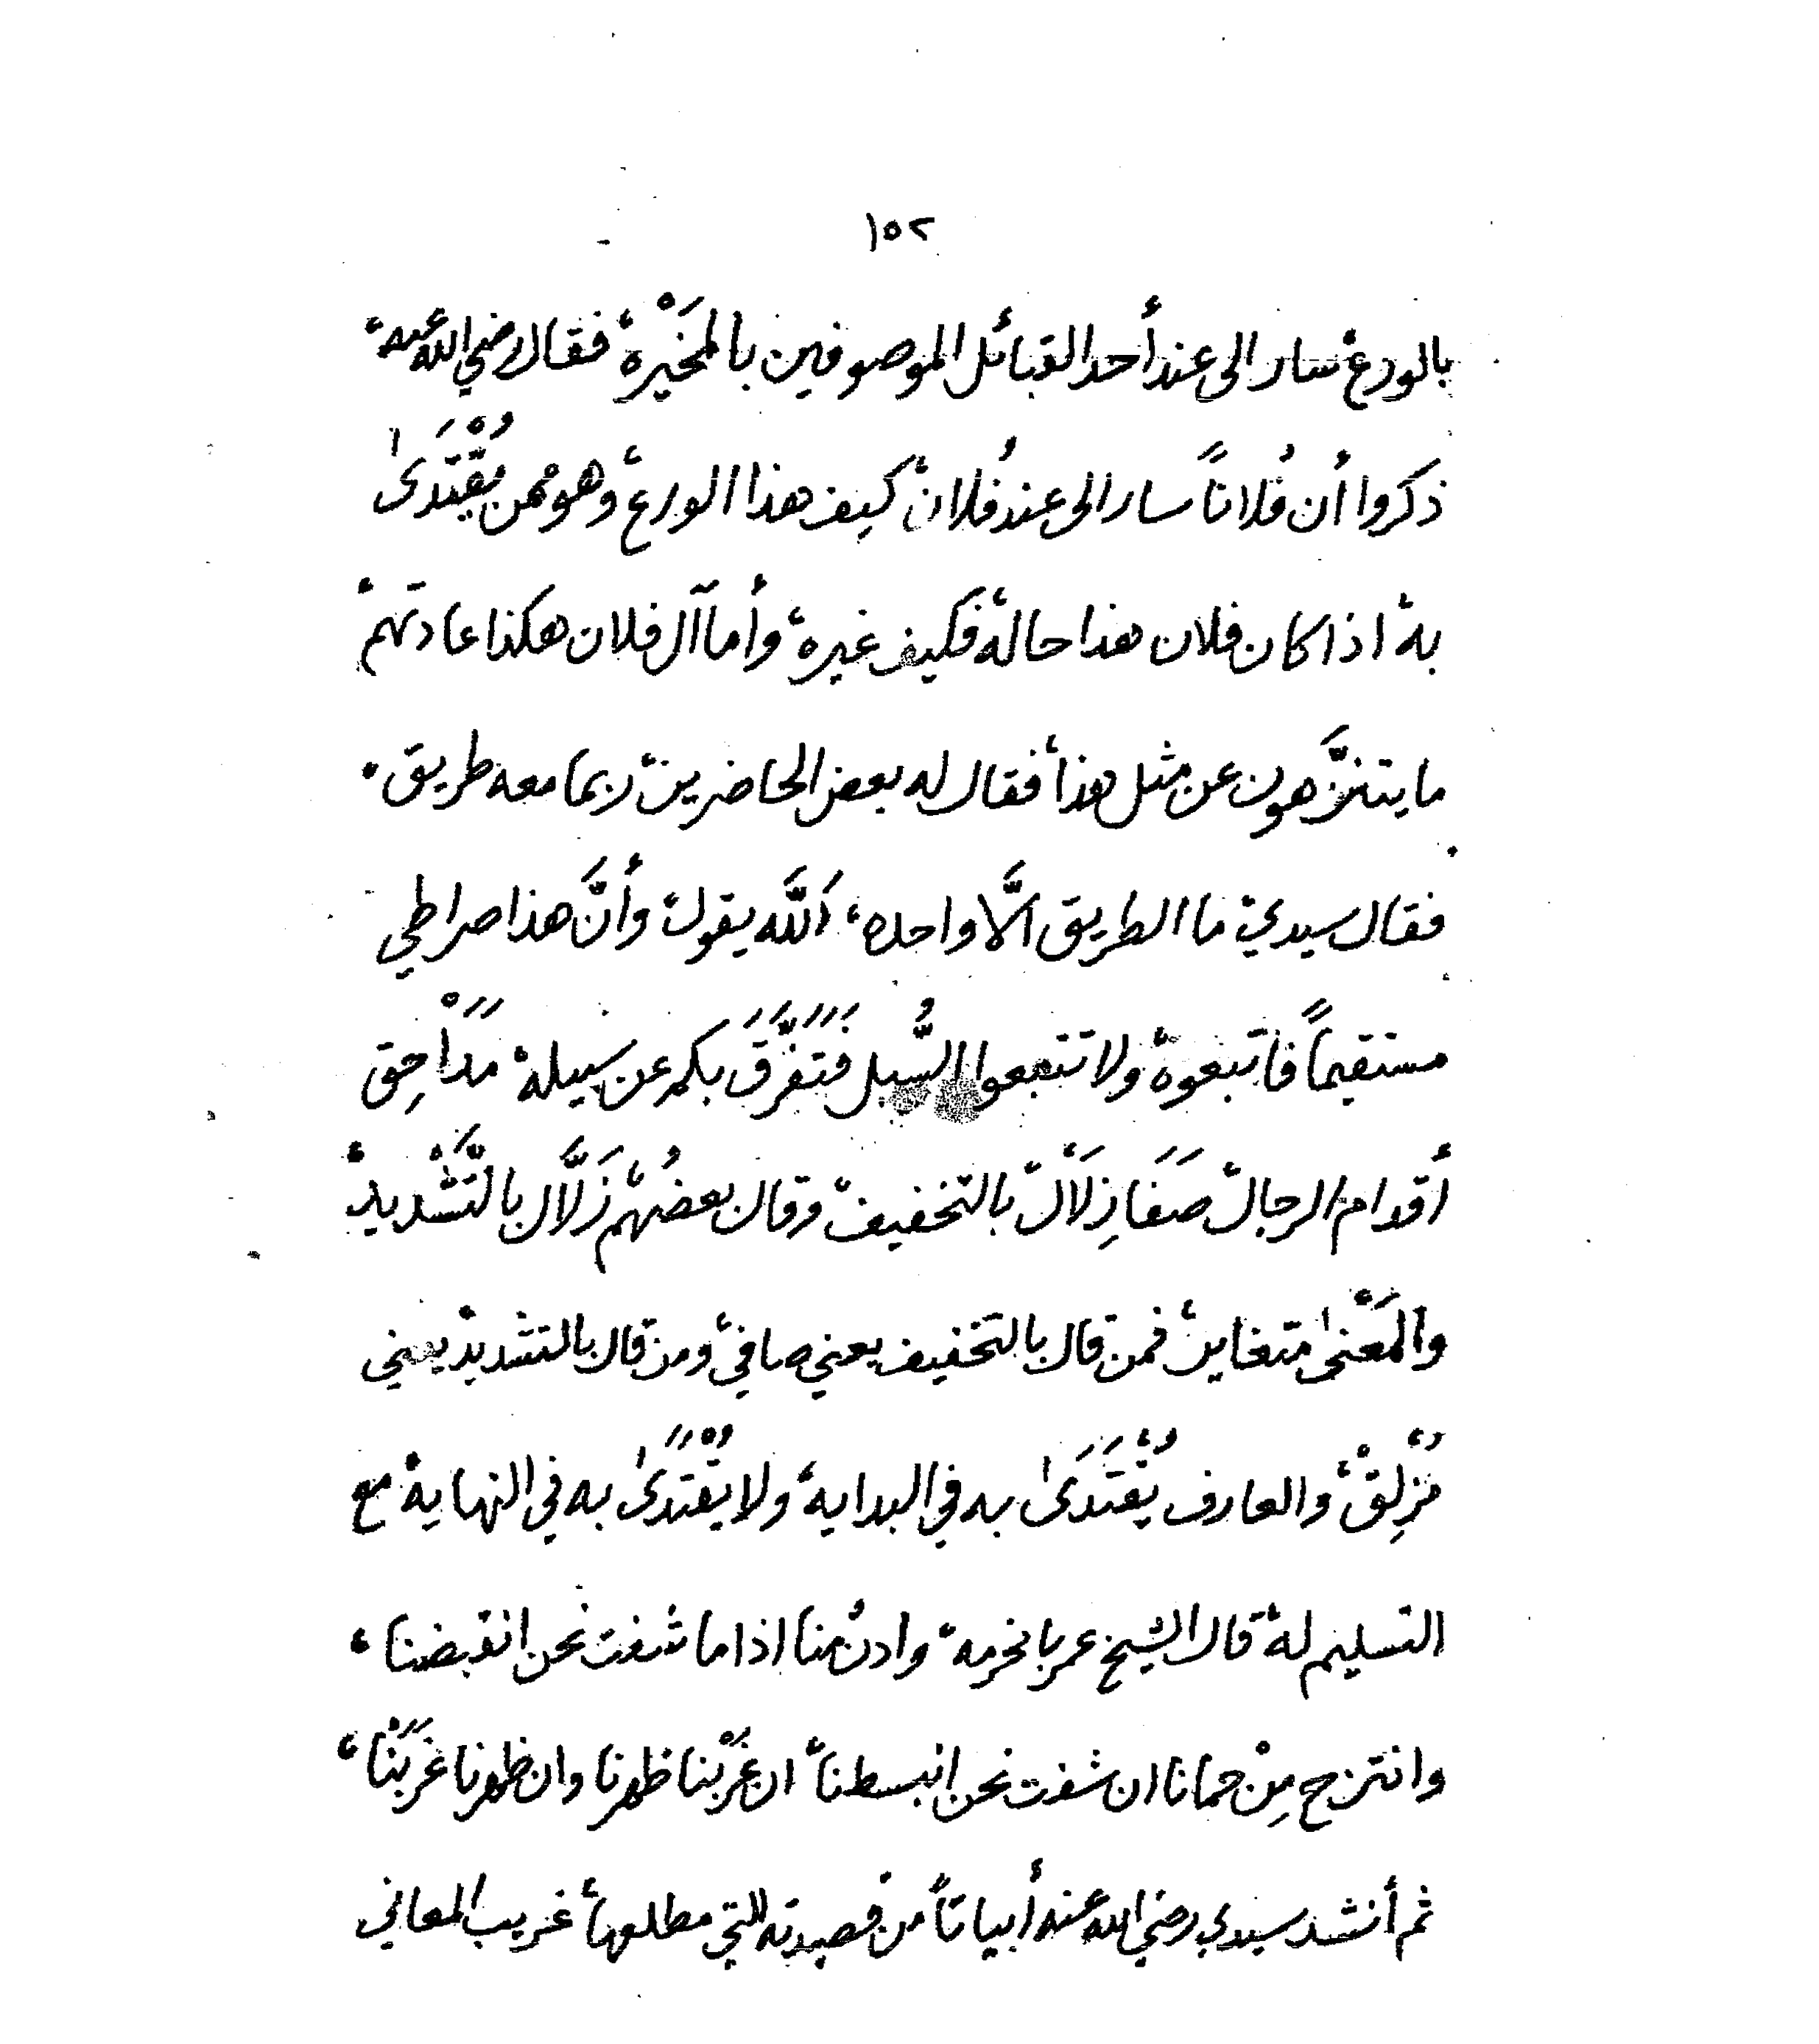 ١٥٢
بالورع، سار الى عند أحد القبائل الموصوفين بالمَخْيَرة، فقال رضي الله عنه،
ذكروا أن فُلاناً سار الى عند فُلان، كيف هذا الورع، وهو ممن يُقْتَدَىٰ
به، اذا كان فلان هذا حاله، فكيف غيره، وأما آل فلان هكذا عادتهم،
ما يتنزَّهون عن مثل هذا، فقال له بعض الحاضرين، ربما معه طريق،
فقال سيدي، ما الطريق الَّا واحده، اَللَّه يقول، وأنَّ هذا صراطي
مستقيماً فاتبعوه، ولا تتبعوا السُّبل فَتَفَرَّقَ بكم عن سبيله، مَدَاْحِق
أقدام الرجال، صَفَا زِلَاَل، بالتخفيف، وقال بعضُهم، زَلَّال بالتَّشْديد،
والمَعْنىٰ متغاير، فمن قال بالتخفيف يعني صافي، ومن قال بالتشديد، يعني
مُزْلِق، والعارف يُقْتَدَىٰ به في البداية، ولا يُقْتَدَىٰ به في النهاية، مع
التسليم له، قال الشيخ عمر بامخرمه، وادنُ منا اذا ما شفت نحن انقبضنا،
وانتزح مِنْ حمانا ان شفت نحن انبسطنا، ان غَرَبْنا ظهرنا وان ظهرنا غَرَبْنا،
ثم أنشد سيدي رضي الله عنه أبياتاً من قصيدته التي مطلعها، غريب المعاني